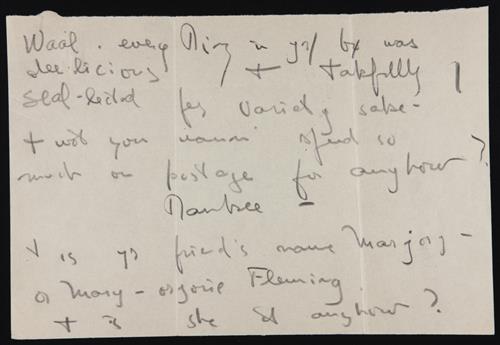 Waal. every Ding in yr/ bx was
dee-licious + takfully
selected for Variety sake-
+ wot you wanna spend so
much on postage for anyhow?
Dankee -
+ is yr friend's name Marjory -
or Mary-orgorie Fleming
+ is she St anyhow?